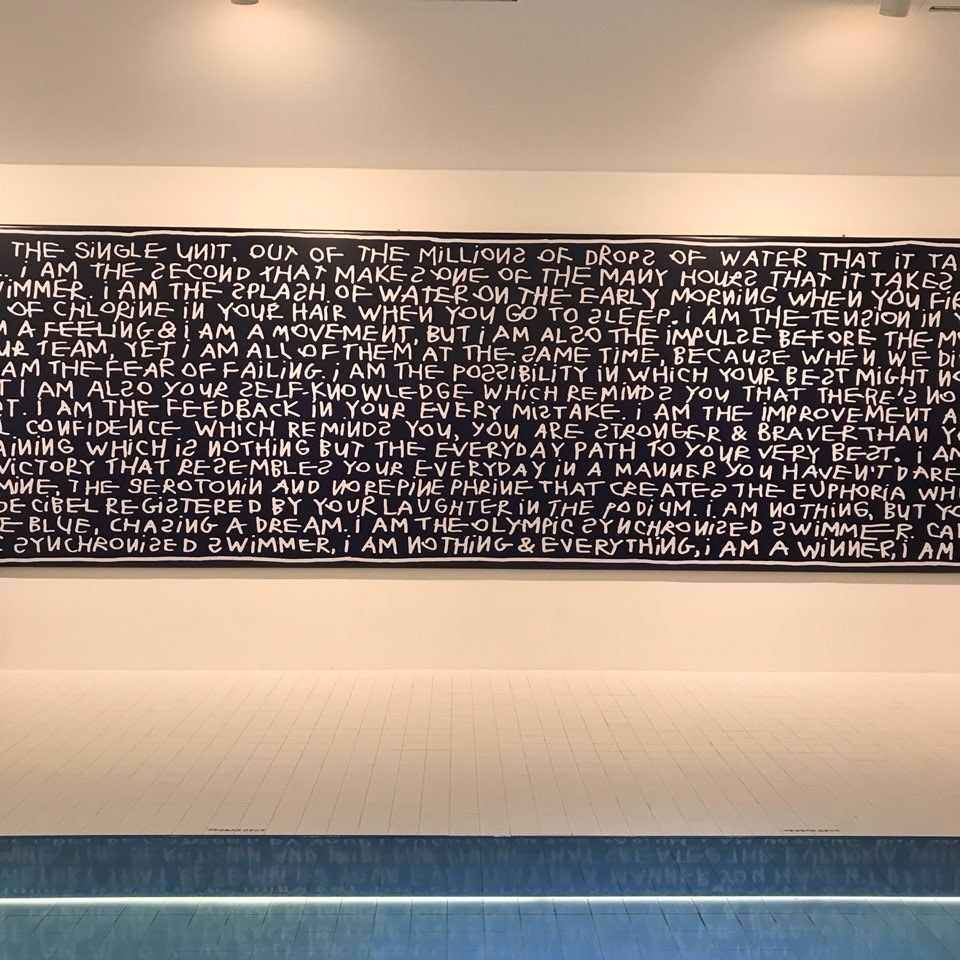 THE SINGLE UNIT, OUT OF THE MILLIONS OF DROPS OF WATER THAT IT TA
I AM THE SECOND THAT MAKES ONE OF THE MANY HOURS THAT IT TAKES
IMMER. I AM THE SPLASH OF WATER ON THE EARLY MORNING WHEN YOU FI
OF CHLORINE IN YOUR HAIR WHEN YOU GO TO SLEEP. I AM THE TENSION IN
A FEELING & I AM A MOVEMENT, BUT I AM ALSO THE IMPULSE BEFORE THE M
UR TEAM, YET I AM ALL OF THEM AT THE SAME TIME, BECAUSE WHEN WE DI
AM THE FEAR OF FAILING. I AM THE POSSIBILITY IN WHICH YOUR BEST MIGHT NO
T I AM ALSO YOUR SELF-KNOWLEDGE WHICH REMINDS YOU THAT THERE'S NO
T. I AM THE FEEDBACK IN YOUR EVERY MISTAKE. I AM THE IMPROVEMENT A
CONFIDENCE WHICH REMINDS YOU, YOU ARE STRONGER & BRAVER THAN Y
AINING WHICH IS NOTHING BUT THE EVERYDAY PATH TO YOUR VERY BEST. I AM
VICTORY THAT RESEMBLES YOUR EVERYDAY IN A MANNER YOU HAVEN'T DARE
MINE, THE SEROTONIN AND NOREPINEPHRINE THAT CREATES THE EUPHORIA WHI
DECIBEL REGISTERED BY YOUR LAUGHTER IN THE PODIUM. I AM NOTHING, BUT YO
E BLUE, CHASING A DREAM. I AM THE OLYMPIC SYNCHRONISED SWIMMER. CA
SYNCHRONISED SWIMMER, I AM NOTHING & EVERYTHING, I AM A WINNER, I AM